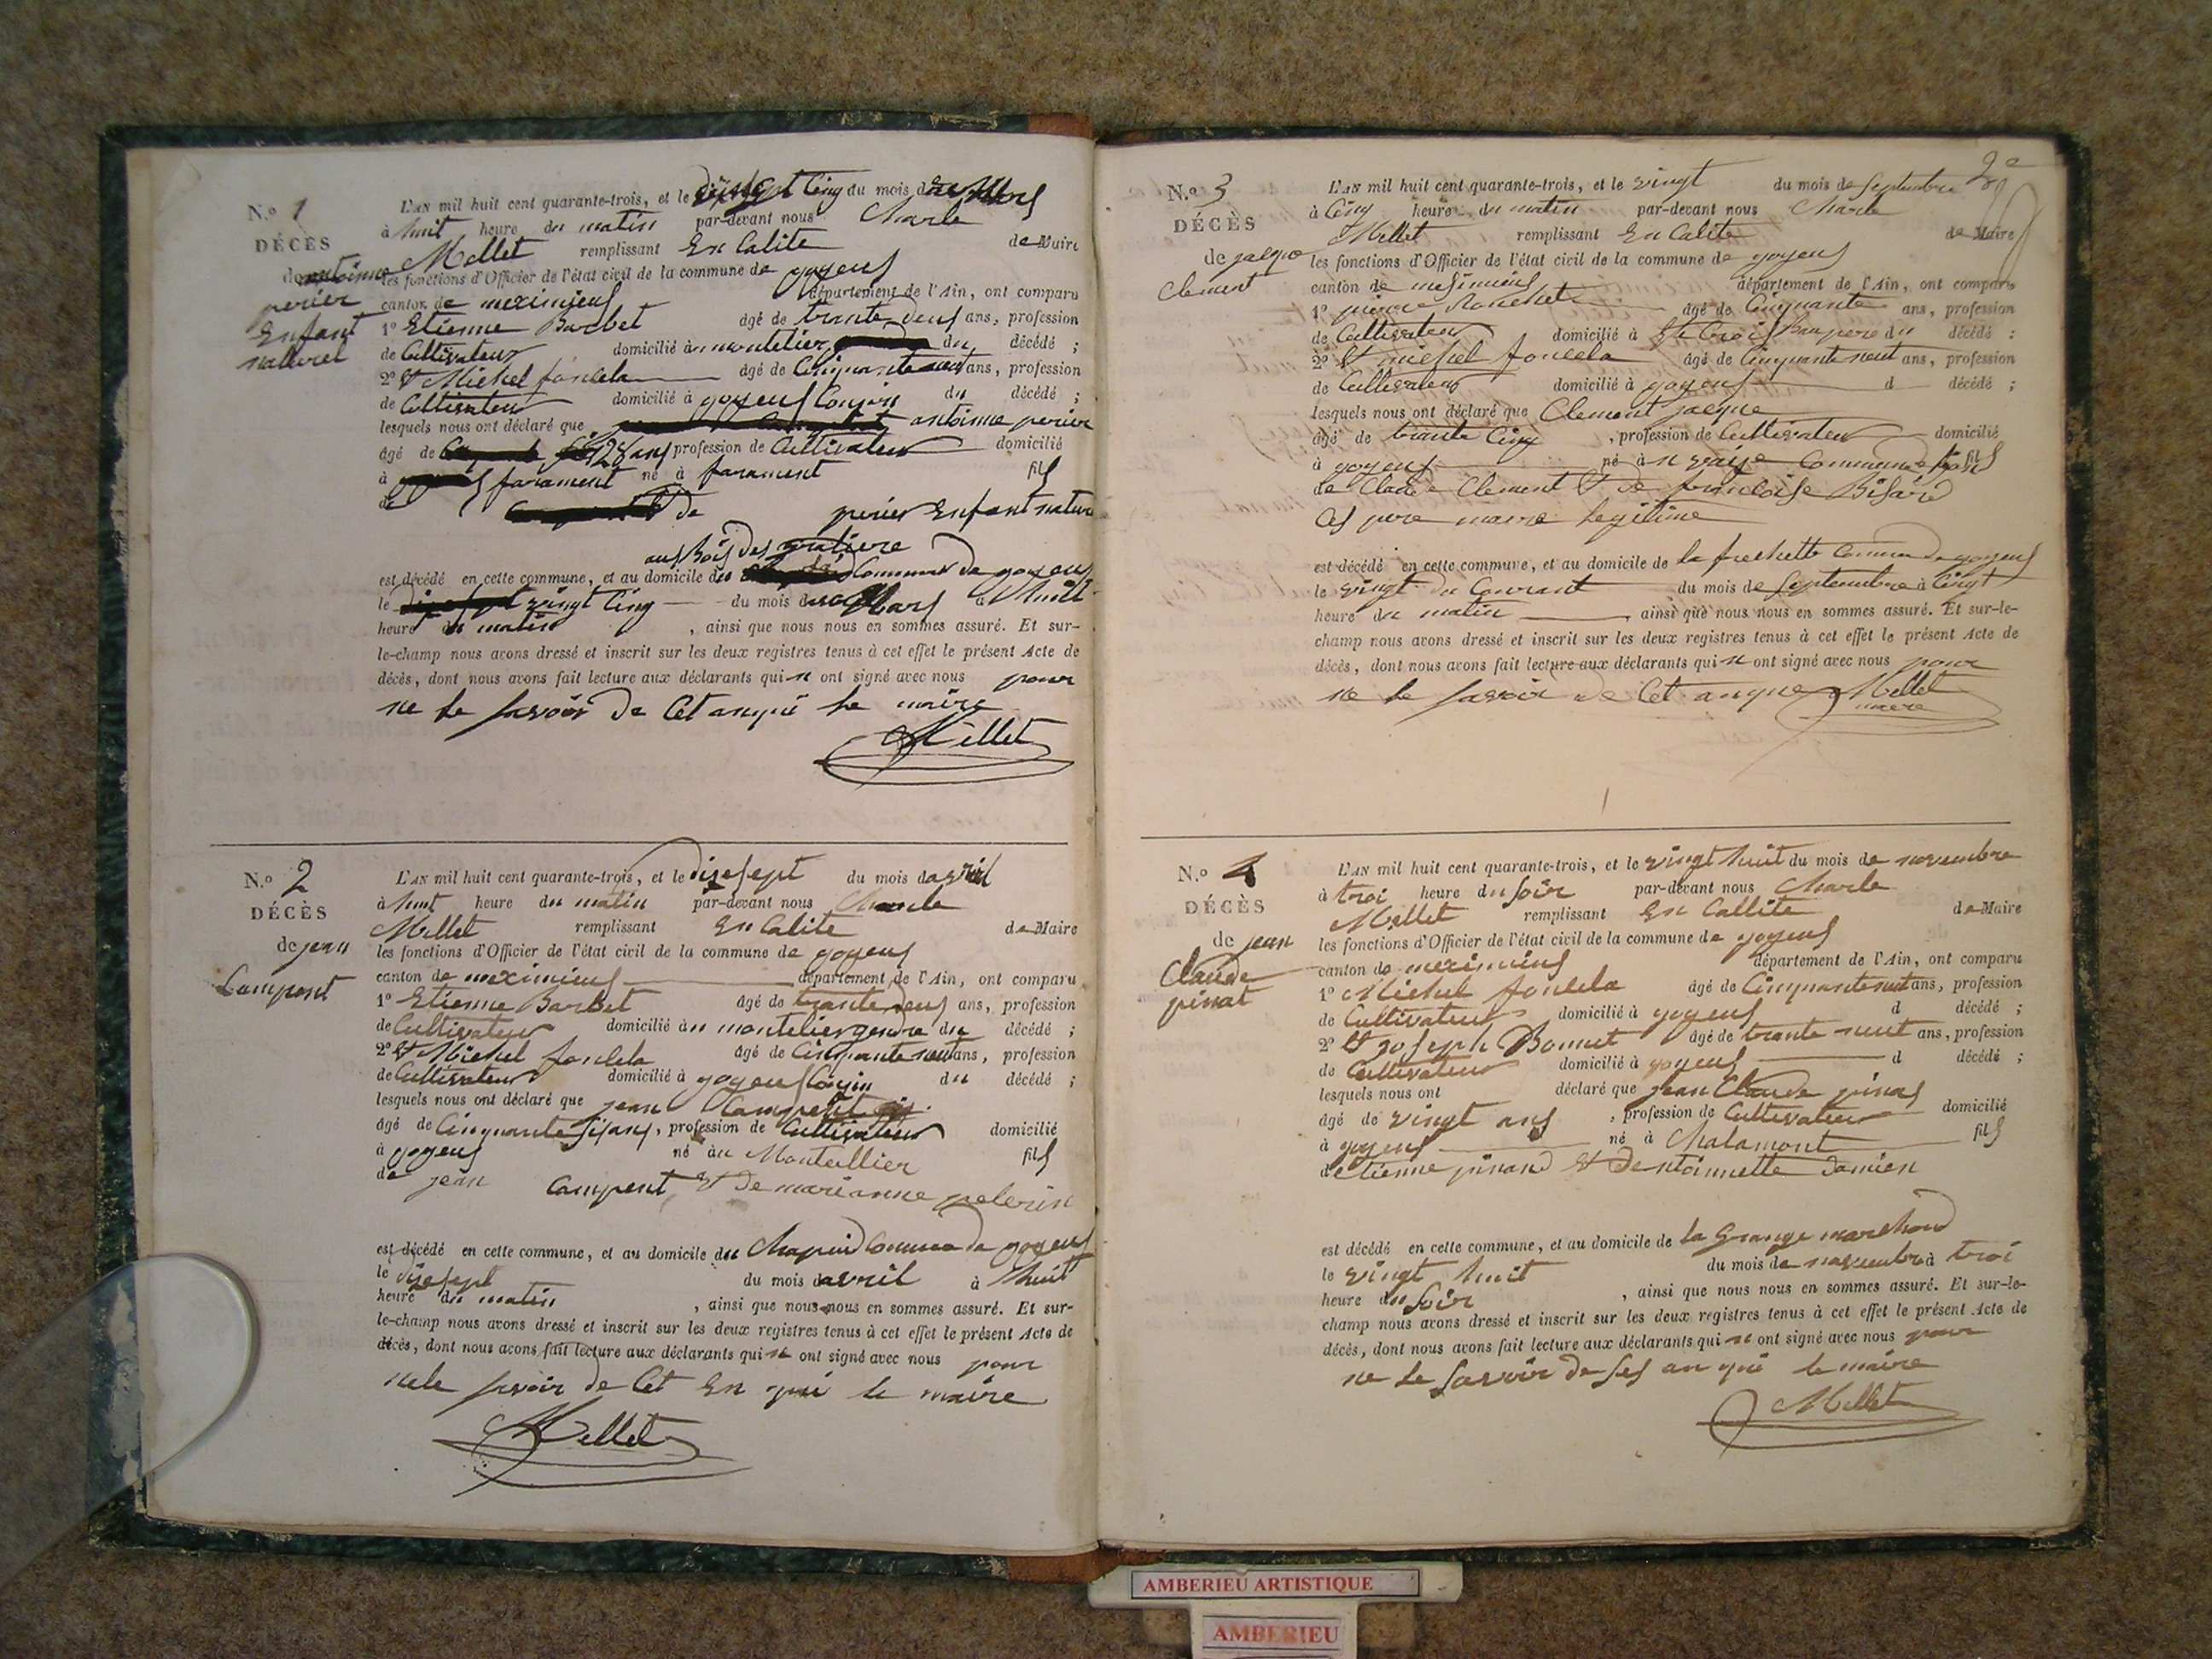 N.º 1
DÉCÈS
de antoinne
perier
Enfant
naturel
L'AN mil huit cent quarante-trois, et le vingt Cinq du mois de Mars
à huit heure du matin par-devant nous Charle
Mellet remplissant En Calite de Maire
les fonctions d'Officier de l'état civil de la commune de joyeus
canton de meximieus département de l'Ain, ont comparu
1º Etienne Barbet âgé de trante deus ans, profession
de Cultivateur domicilié à montelier du décédé ;
2º et Michel foulela âgé de Cinquante neuf ans, profession
de Cultivateur domicilié à joyeus Cousin du décédé ;
lesquels nous ont déclaré que antoinne perier
âgé de 28 ans profession de Cultivateur domicilié
à farament né à farament fils
de perier Enfant nature
aus Bois des
est décédé en cette commune, et au domicile du Commune de joyeus
le vingt Cinq du mois de Mars à huit
heure du matin, ainsi que nous nous en sommes assuré. Et sur-
le-champ nous avons dressé et inscrit sur les deux registres tenus à cet effet le présent Acte de
décès, dont nous avons fait lecture aux déclarants qui n ont signé avec nous pour
ne le savoir de Cet anqui le maire
Mellet
N.º 2
DÉCÈS
de jean
Campent
L'AN mil huit cent quarante-trois, et le disesept du mois d avril
à huit heure du matin par-devant nous Charle
Mellet remplissant En Calite de Maire
les fonctions d'Officier de l'état civil de la commune de joyeus
canton de meximieus département de l'Ain, ont comparu
1º Etienne Barbet âgé de trante deus ans, profession
de Cultivateur domicilié à u montelier gendre du décédé ;
2º et Michel foulela âgé de Cinquante neuf ans, profession
de Cultivateur domicilié à joyeus Cousin du décédé ;
lesquels nous ont déclaré que jean Campent
âgé de Cinquante sis ans, profession de Cultivateur domicilié
à joyeus né au Montellier fils
de jean Campent et de marianne pelerin
est décédé en cette commune, et au domicile du Chapuid Commune de joyeus
le disesept du mois d avril à huit
heure du matin, ainsi que nous nous en sommes assuré. Et sur-
le-champ nous avons dressé et inscrit sur les deux registres tenus à cet effet le présent Acte de
décès, dont nous avons fait lecture aux déclarants qui n ont signé avec nous pour
ne le savoir de Cet En qui le maire
Mellet
2e
N.º 3
DÉCÈS
de jacque
Clement
L'AN mil huit cent quarante-trois, et le vingt du mois de septembre
à Cinq heure du matin par-devant nous Charle
Mellet remplissant En Calite de Maire
les fonctions d'Officier de l'état civil de la commune de joyeus
canton de mesimieus département de l'Ain, ont comparu
1º pierre Ronchet âgé de Cinquante ans, profession
de Cultivateur domicilié à Ste Crois Baupere du décédé ;
2º et michel foulela âgé de Cinquante neuf ans, profession
de Cultivateur domicilié à joyeus d décédé ;
lesquels nous ont déclaré que Clement jacque
âgé de trante Cinq, profession de Cultivateur domicilié
à joyeus né à Commune fils
de Claude Clement et de francoise Bisard
Ces pere maire legitime
est décédé en cette commune, et au domicile de la frechette Commune de joyeus
le vingt du Courant du mois de septembre à Cinq
heure du matin, ainsi que nous nous en sommes assuré. Et sur-le-
champ nous avons dressé et inscrit sur les deux registres tenus à cet effet le présent Acte de
décès, dont nous avons fait lecture aux déclarants qui n ont signé avec nous pour
ne le savoir de Cet anque Mellet
maire
N.º 4
DÉCÈS
de jean
Claude
pinat
L'AN mil huit cent quarante-trois, et le vingt huit du mois de novembre
à troi heure du soir par-devant nous Charle
Mellet remplissant En Callite de Maire
les fonctions d'Officier de l'état civil de la commune de joyeus
canton de meximieus département de l'Ain, ont comparu
1º Michel foulela âgé de Cinquante neuf ans, profession
de Cultivateur domicilié à joyeus d décédé ;
2º et joseph Bonnet âgé de trante neuf ans, profession
de Cultivateur domicilié à joyeus d décédé ;
lesquels nous ont déclaré que jean Claude pinas
âgé de vingt ans, profession de Cultivateur domicilié
à joyeus né à Chalamont fils
de etienne pinand et de ntoinnette damien
est décédé en cette commune, et au domicile de la Grange marchond
le vingt huit du mois de novembre à troi
heure du soir, ainsi que nous nous en sommes assuré. Et sur-le-
champ nous avons dressé et inscrit sur les deux registres tenus à cet effet le présent Acte de
décès, dont nous avons fait lecture aux déclarants qui n ont signé avec nous pour
ne le savoir de ses an qui le maire
Mellet
AMBERIEU ARTISTIQUE
AMBERIEU